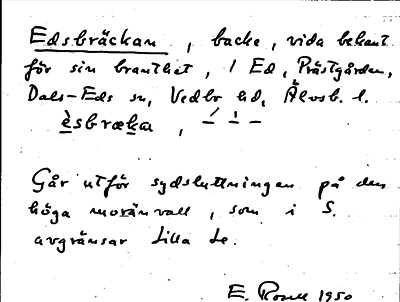 Edsbräckan, backe, vida bekant
för sin branthet, i Ed, Prästgården,
Dals-Eds sn, Vedbo hd, Älvsb. l.
èsbræka, – ´ – –
Går utför sydsluttningen på den
höga moränvall, som i S.
avgränsar Lilla Le.
E. Rosell 1950